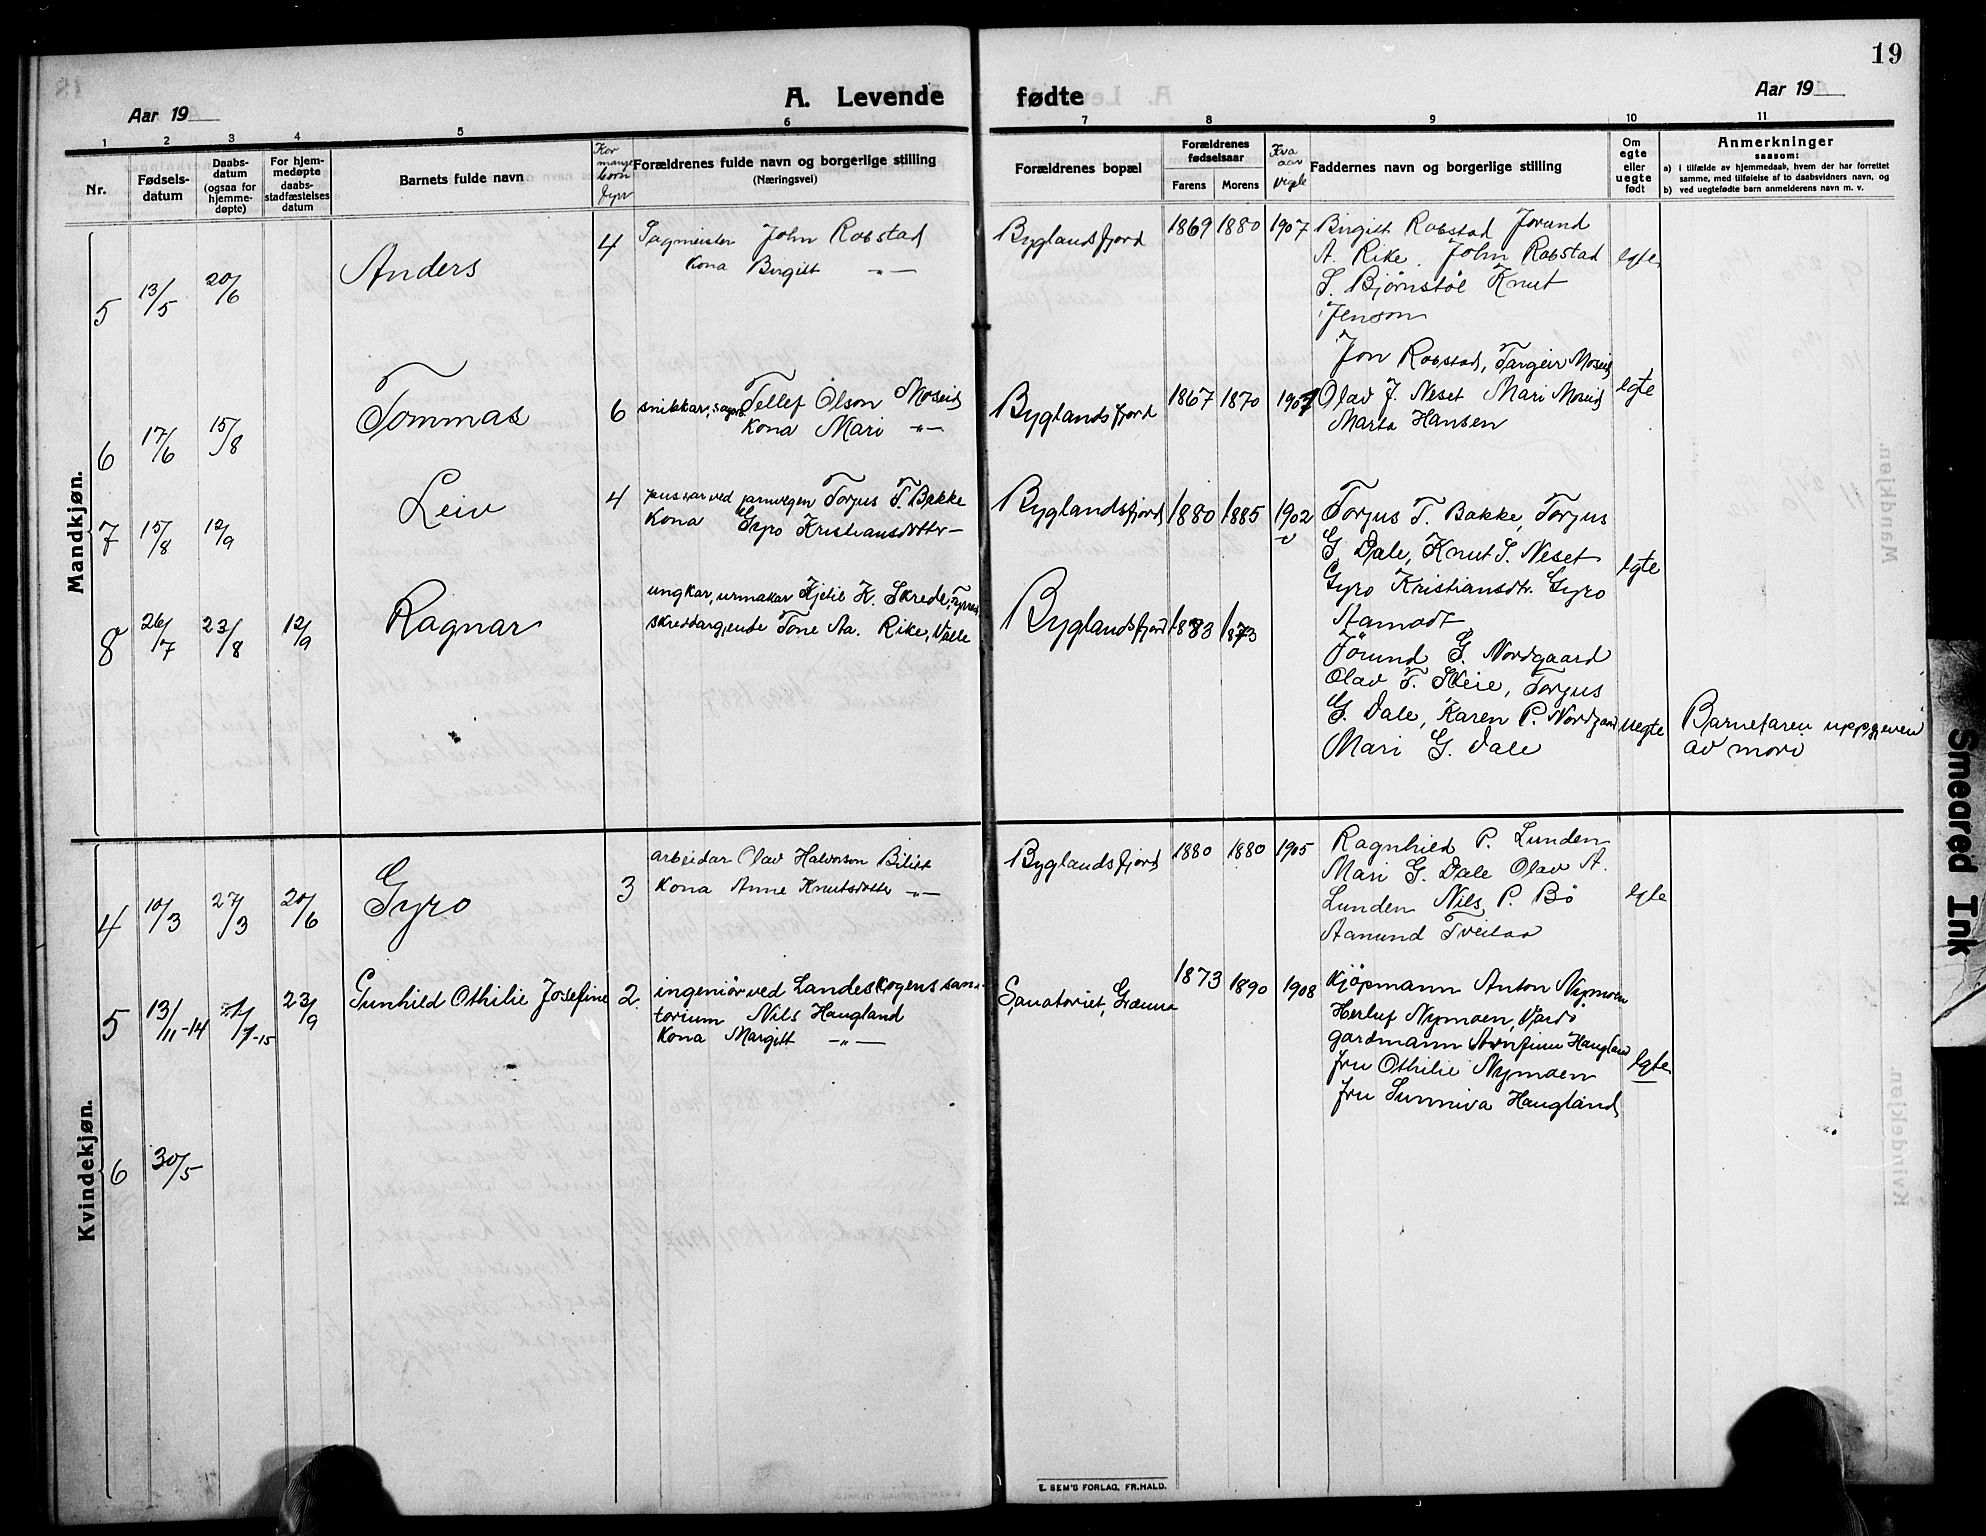 19
A. Levende fødte
Aar 19
Aar 19
1 2 3 4 5 6 7 8 9 10 11
Nr.
Fødsels-
datum
Daabs-
datum
(ogsaa for
hjemme-
døpte)
For hjem-
medøpte
daabs-
stadfæstelses
datum
Barnets fulde navn
Kor
mange
born
fyrr
Forældrenes fulde navn og borgerlige stilling
(Næringsvei)
Forældrenes bopæl
Forældrenes
fødselsaar
Farens Morens
Kva
aar
vigde
Faddernes navn og borgerlige stilling
Om
egte
eller
uegte
født
Anmerkninger
saasom:
a) i tilfælde av hjemmedaab, hvem der har forrettet
samme, med tilføielse af to daabsvidners navn, og
b) ved uegtefødte barn anmelderens navn m. v.
Mandkjøn.
5 13/5 20/6 Anders 4 Sagmeister John Robstad
Kona Birgitt -"-
Byglandsfjord 1869 1880 1907 Birgitt Robstad Jorund
A. Rike. John Robstad
S. Bjørnstøl Knut
Jenson
egte
6 17/6 15/8 Tommas 6 snikkar, Tellef Olson Moseid
Kona Mari -"-
Byglandsfjord 1867 1870 Jon Robstad, Targeir Moseid
Olav J. Neset Mari Moseid
Marta Hansen
egte
7 15/8 12/9 Leiv 4 pussar ved jarnvegen Torjus T. Bakke
Kona Gyro Kristiansdotter -
Byglandsfjord 1880 1885 1902 Torjus T. Bakke, Torjus
G. Dale, Knut S. Neset
Gyro Kristiansdtr. Gyro
Aamodt
egte
8 26/7 23/8 12/9 Ragnar ungkar, urmakar Kjetil K. Skrede,
skreddargjente Tone Aa. Rike, Valle
Byglandsfjord 1883 1873
Jørund G. Nordgaard
Olav T. Skeie, Torjus
G. Dale, Karen P. Nordgaard
Mari G. Dale
uegte
Barnefaren uppgjeven
av mori
Kvindekjøn.
4 10/3 27/3 20/6 Gyro 3 arbeidar Olav Halvorson
Kona Anne Knutsdotter -"-
Byglandsfjord 1880 1880 1905 Ragnhild P. Lunden
Mari G. Dale Olav A.
Lunden Nils P. Bø
Aanund Tveitaa
egte
5 13/11-14 1/1-15 23/9 Gunhild Othilie Josefine 2 ingeniør ved Landeskogens sana-
torium Nils Haugland
Kona Margitt -"-
Sanatoriet, 1873 1890 1908 Kjøpmann Anton Nymoen
Herluf Nymoen, Vardø
gardmann Arnfinn Haugland
fru Othilie Nymoen
fru Sunniva Haugland
egte
6 30/5
E. SEM'S FORLAG, FR.HALD.
Smeared Ink